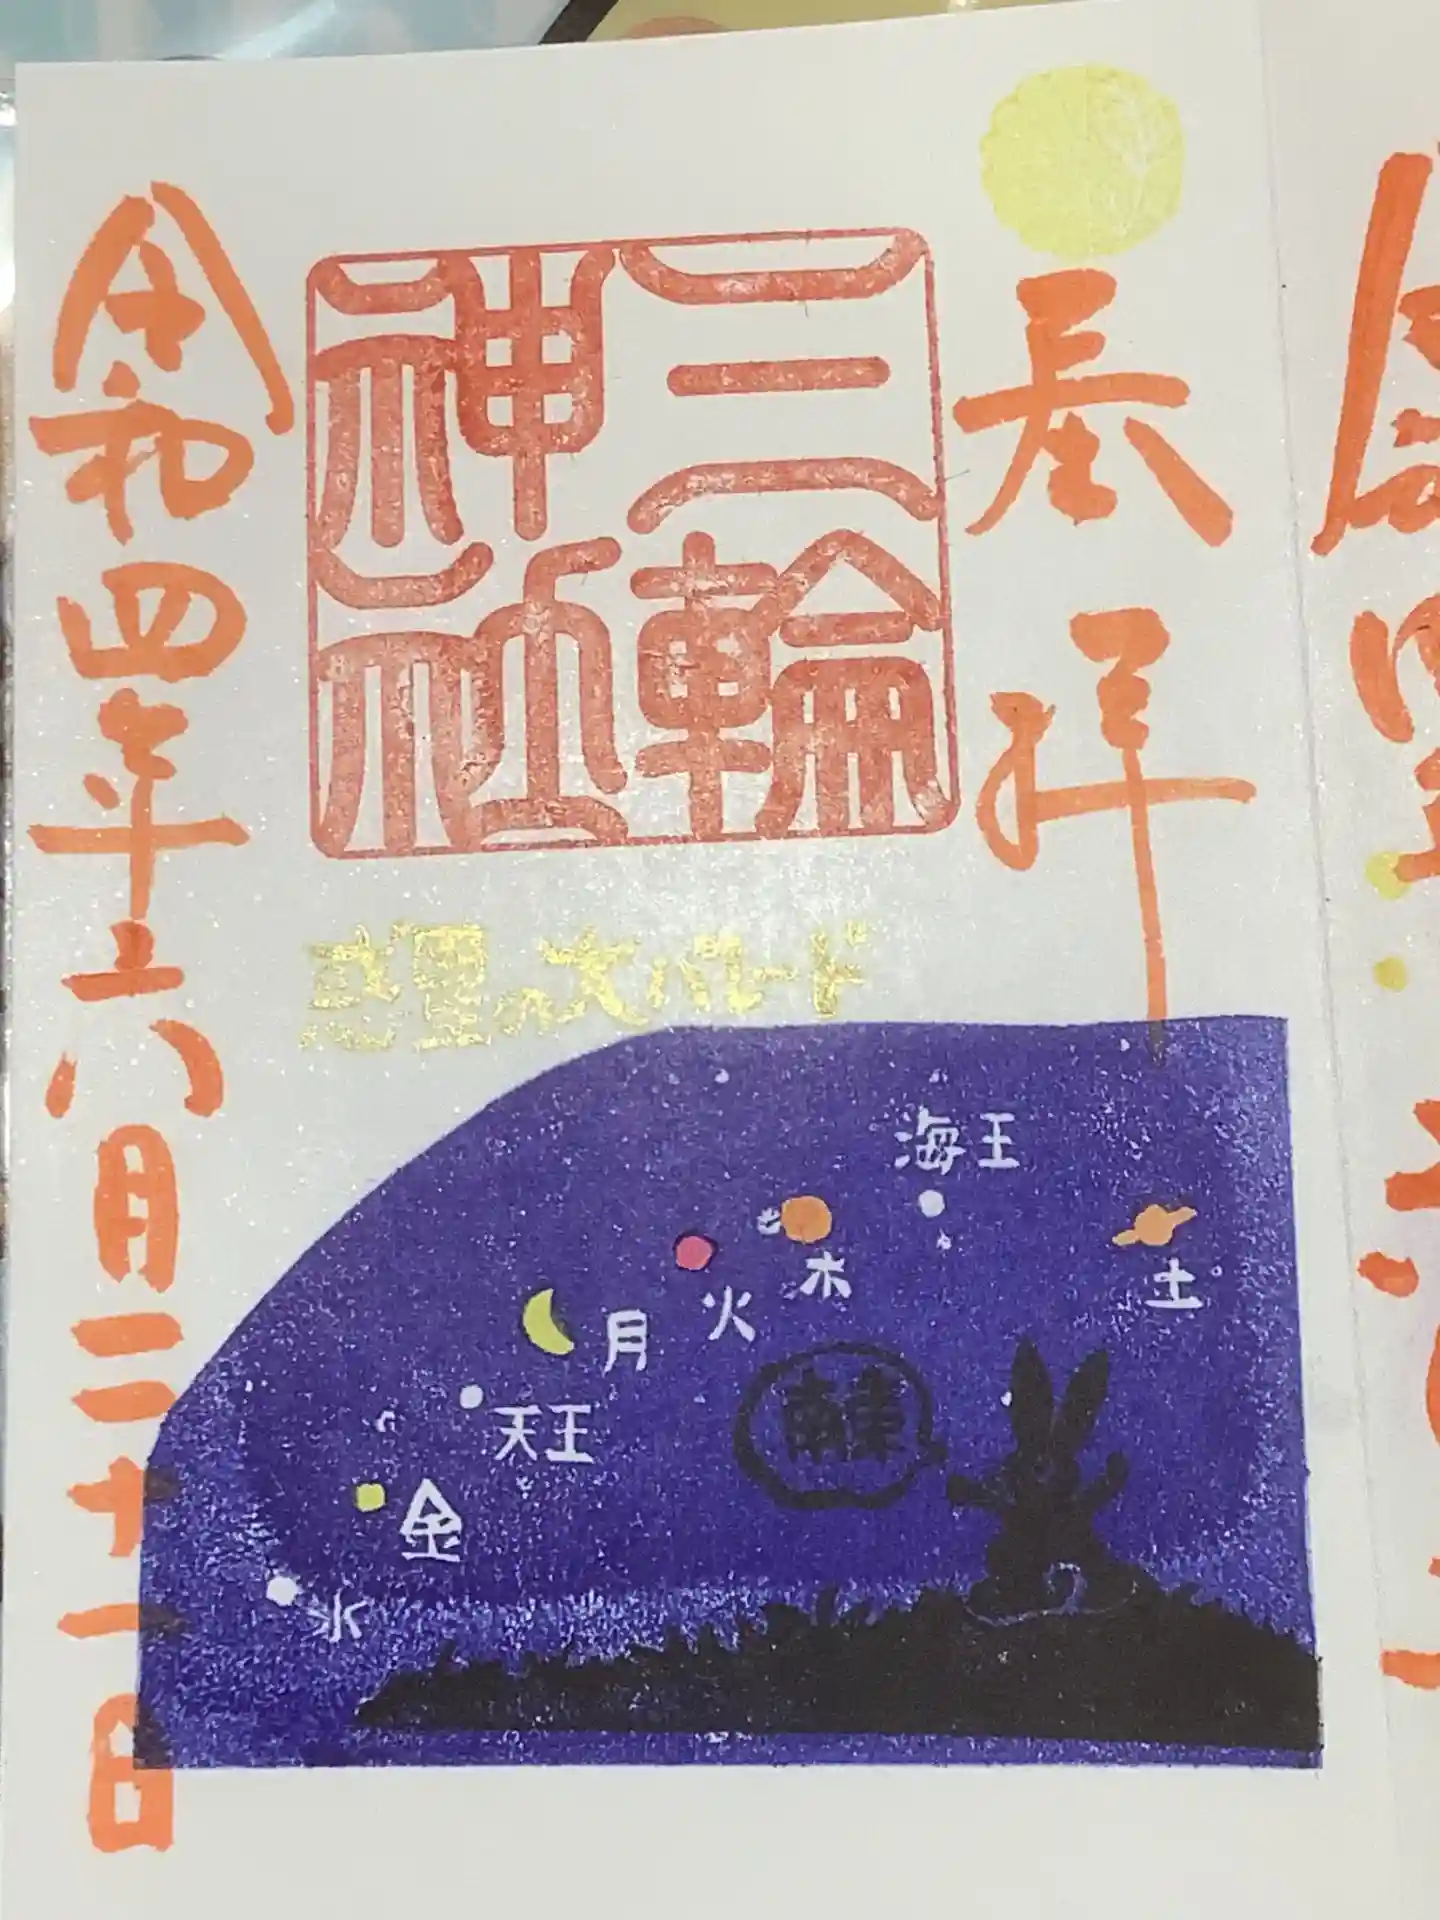 奉拝
三輪
神社
令和四年六月二十一日
惑星の大パレード
海王
土
木
火
月
天王
金
水
南東